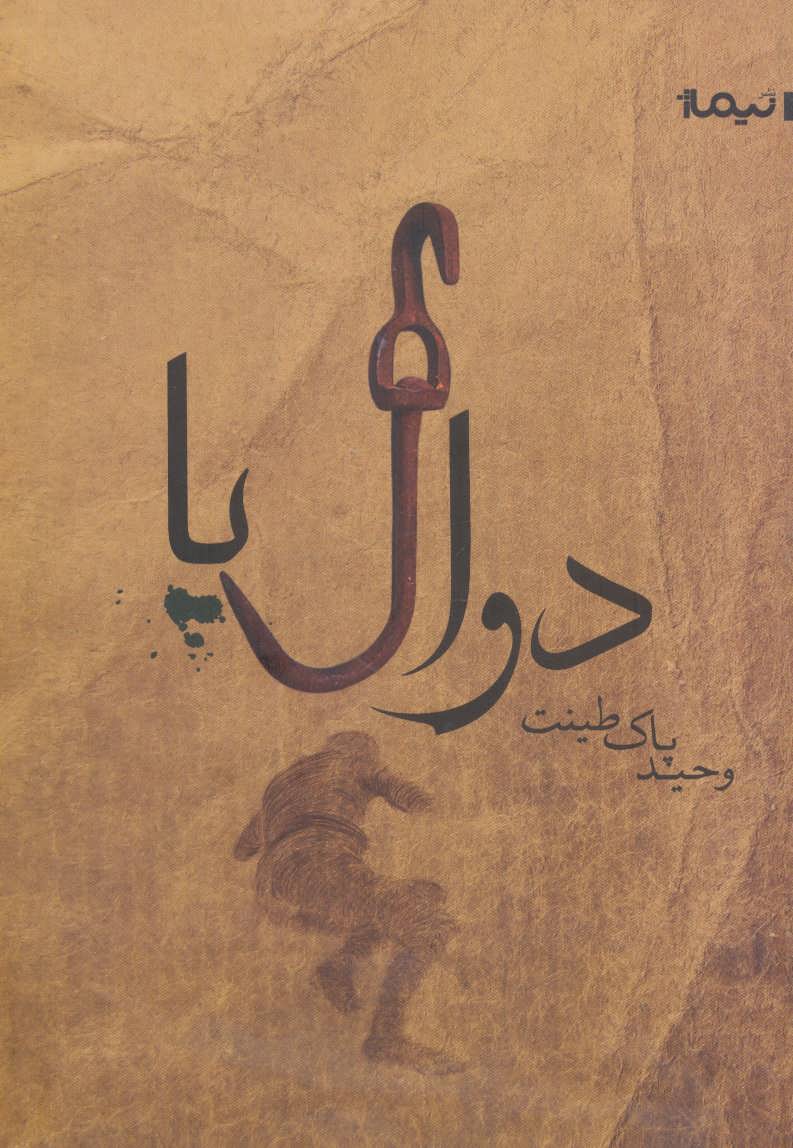 نشر نیماژ
دوال پا
وحید پاک طینت